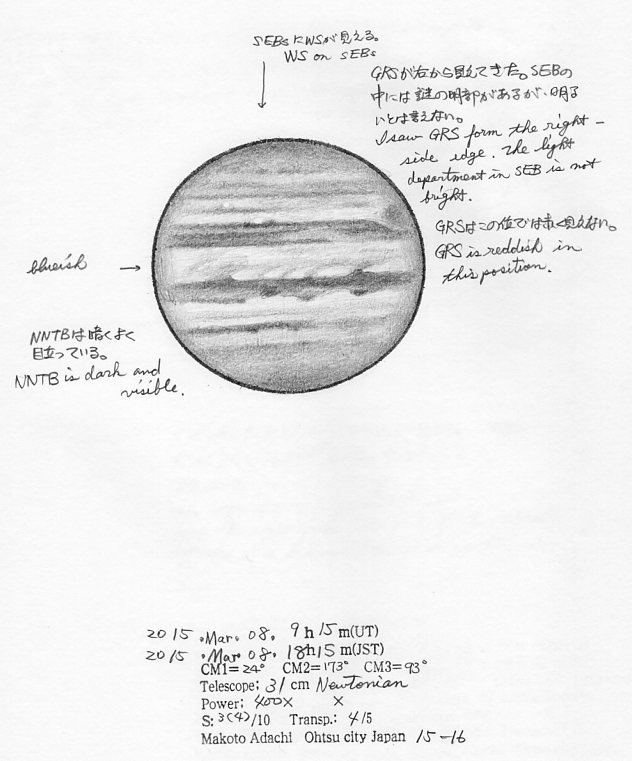 SEBsにWSが見える。
WS on SEBs
GRSが右から見えてきた。SEBの
中には謎の明部があるが、明る
いとは言えない。
I saw GRS form the right-
side edge. The light
department in SEB is not
bright.
GRSはこの位置では赤く見えない。
GRS is reddish in
this position.
blueish
NNTBは暗くよく
目立っている。
NNTB is dark and
visible.
2015.Mar.08. 9h15m(UT)
2015.Mar.08.18h15m(JST)
CM1=24° CM2=173° CM3=93°
Telescope; 31cm Newtonian
Power; 400× ×
S:3(4)/10 Transp.; 4/5
Makoto Adachi Ohtsu city Japan 15-16